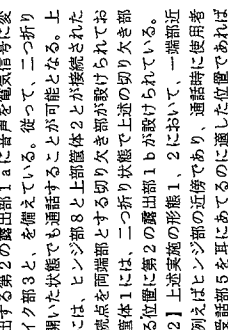 出する第2の露出部1aに音声を電気信号に変
イク部3と、を備えている。従って、二つ折り
開いた状態でも通話することが可能となる。上
には、ヒンジ部8と上部筐体2とが接続された
続点を両端部とする切り欠き部が設けられてお
筐体1には、二つ折り状態で上述の切り欠き部
る位置に第2の露出部1bが設けられている。
2】上述実施の形態1、2において、一端部近
例えばヒンジ部の近傍であり、通話時に使用者
受話部5を耳にあてるのに適した位置であれば